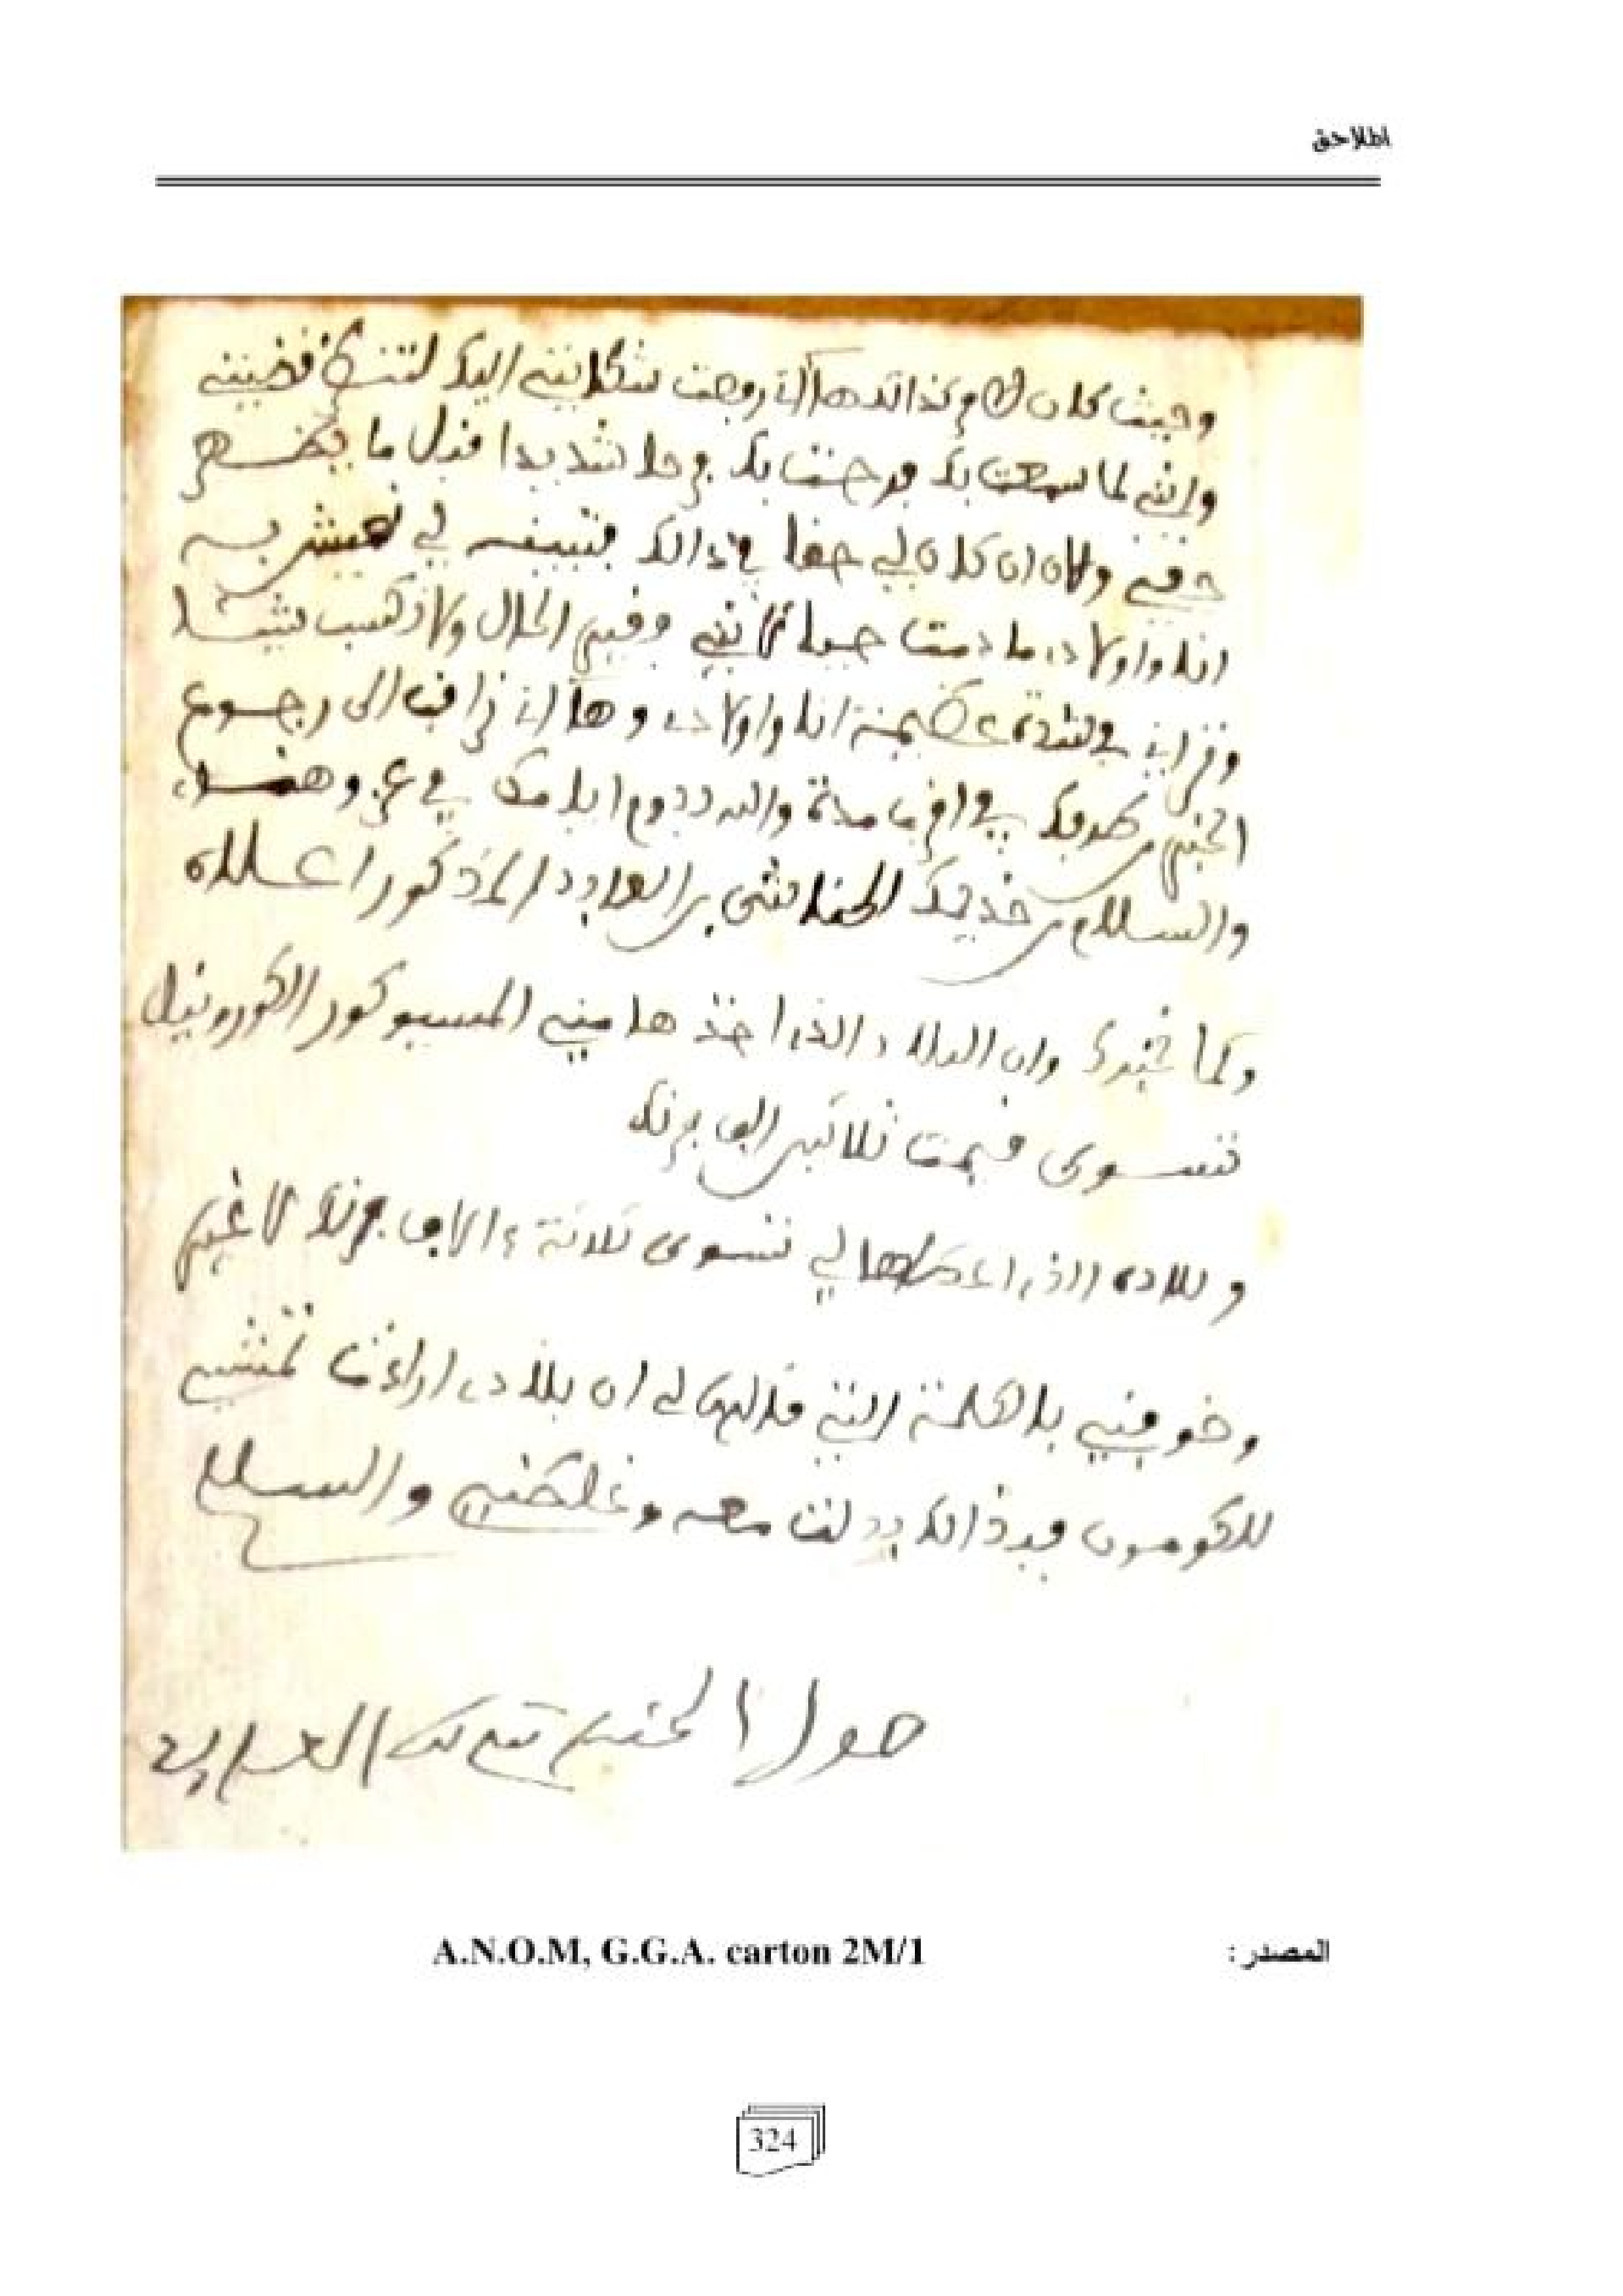 الملاحق
وحيث كان الامر كذالك هاأني رفعت شكايتي اليك لتنظر قضيتي
وإنني لما سمعت بك فرحت بك فرحا شديدا قبل ما يظهر
حقي والان ان كان لي حقا في ذالك فتبينه لي نعيش به
انا واولادي ما دمت حيا لأنني فقير الحال ولا نكسب شيئا
وتراني في شدة عظيمة انا واولادي وهاأني نراقب الى رجوع
الخبر من طرفك في اقرب مدة والله يديم ايامك في عز وهناء
والسلام من خديمك الحفاشي بن العابد المذكور اعلاه
وكما نخبرك وان البلاد الذي اخذها مني المسيو كور الكورونيل
تسوى قيمت ثلاثين الف فرنك
وبلاده الذي اعطاها لي تسوى ثلاثة ءالاف فرنك لا غير
وخوفني بالكلمة التي قالها لي ان بلادي اراضت تمشي
للكومون فبذالك بدلت معه وغلطني والسلام
حول الخبر
المصدر : A.N.O.M, G.G.A. carton 2M/1
324